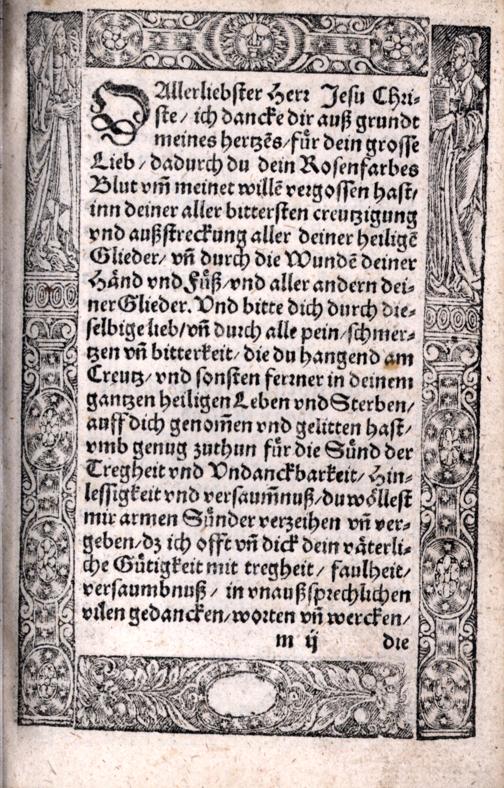 O Allerliebster Herr Jesu Chri⸗
ste / ich dancke dir auß grundt
meines hertzẽs / fůr dein grosse
Lieb / dadurch du dein Rosenfarbes
Blut vm̃ meinet willẽ vergossen hast /
inn deiner aller bittersten creutzigung
vnd außstreckung aller deiner heiligẽ
Glieder / vñ durch die Wundẽ deiner
Hånd vnd Fůß / vnd aller andern dei⸗
ner Glieder. Vnd bitte dich durch die⸗
selbige lieb / vñ durch alle pein / schmer⸗
tzen vñ bitterkeit / die du hangend am
Creutz / vnd sonsten ferrner in deinem
gantzen heiligen Leben vnd Sterben /
auff dich genom̃en vnd gelitten hast /
vmb genug zuthun fůr die Sůnd der
Tregheit vnd Vndanckbarkeit / Hin⸗
lessigkeit vnd versaum̃nuß / du wöllest
mir armen Sůnder verzeihen vñ ver⸗
geben / dz ich offt vñ dick dein våterli⸗
che Gůtigkeit mit tregheit / faulheit /
versaumbnuß / in vnaußsprechlichen
vilen gedancken / worten vñ wercken /
m ij die